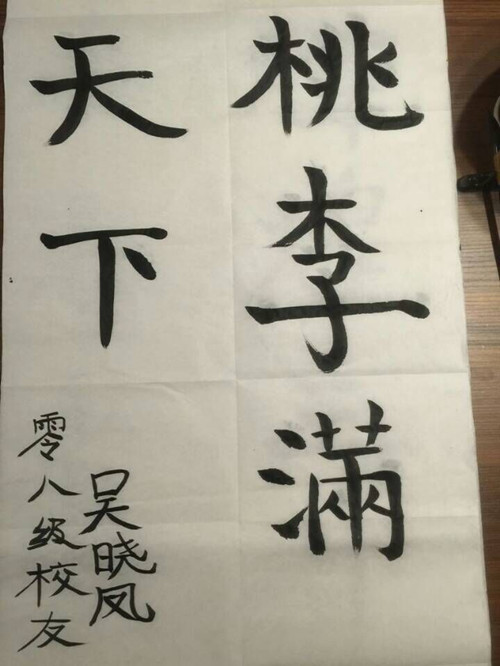 桃李滿
天下
零八级校友
吴晓凤